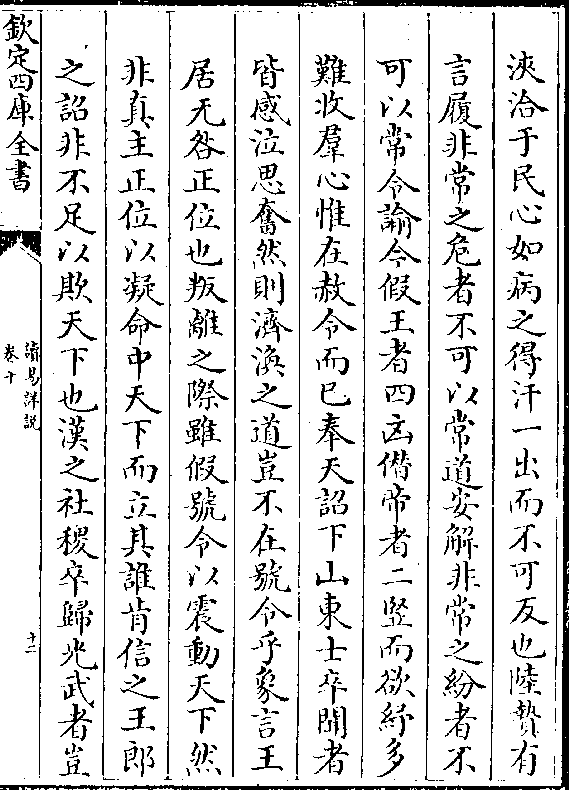 浹洽于民心如病之得汗一出而不可反也陸贄有
言履非常之危者不可以常道安解非常之紛者不
可以常令諭今假王者四凶僣帝者二竪而欲紓多
難收羣心惟在赦令而已奉天詔下山東士卒聞者
皆感泣思奮然則濟渙之道豈不在號令乎象言王
居无咎正位也叛離之際雖假號令以震動天下然
非真主正位以凝命中天下而立其誰肯信之王郎
之詔非不足以欺天下也漢之社稷卒歸光武者豈
欽定四庫全書
讀易詳說
卷十
十二